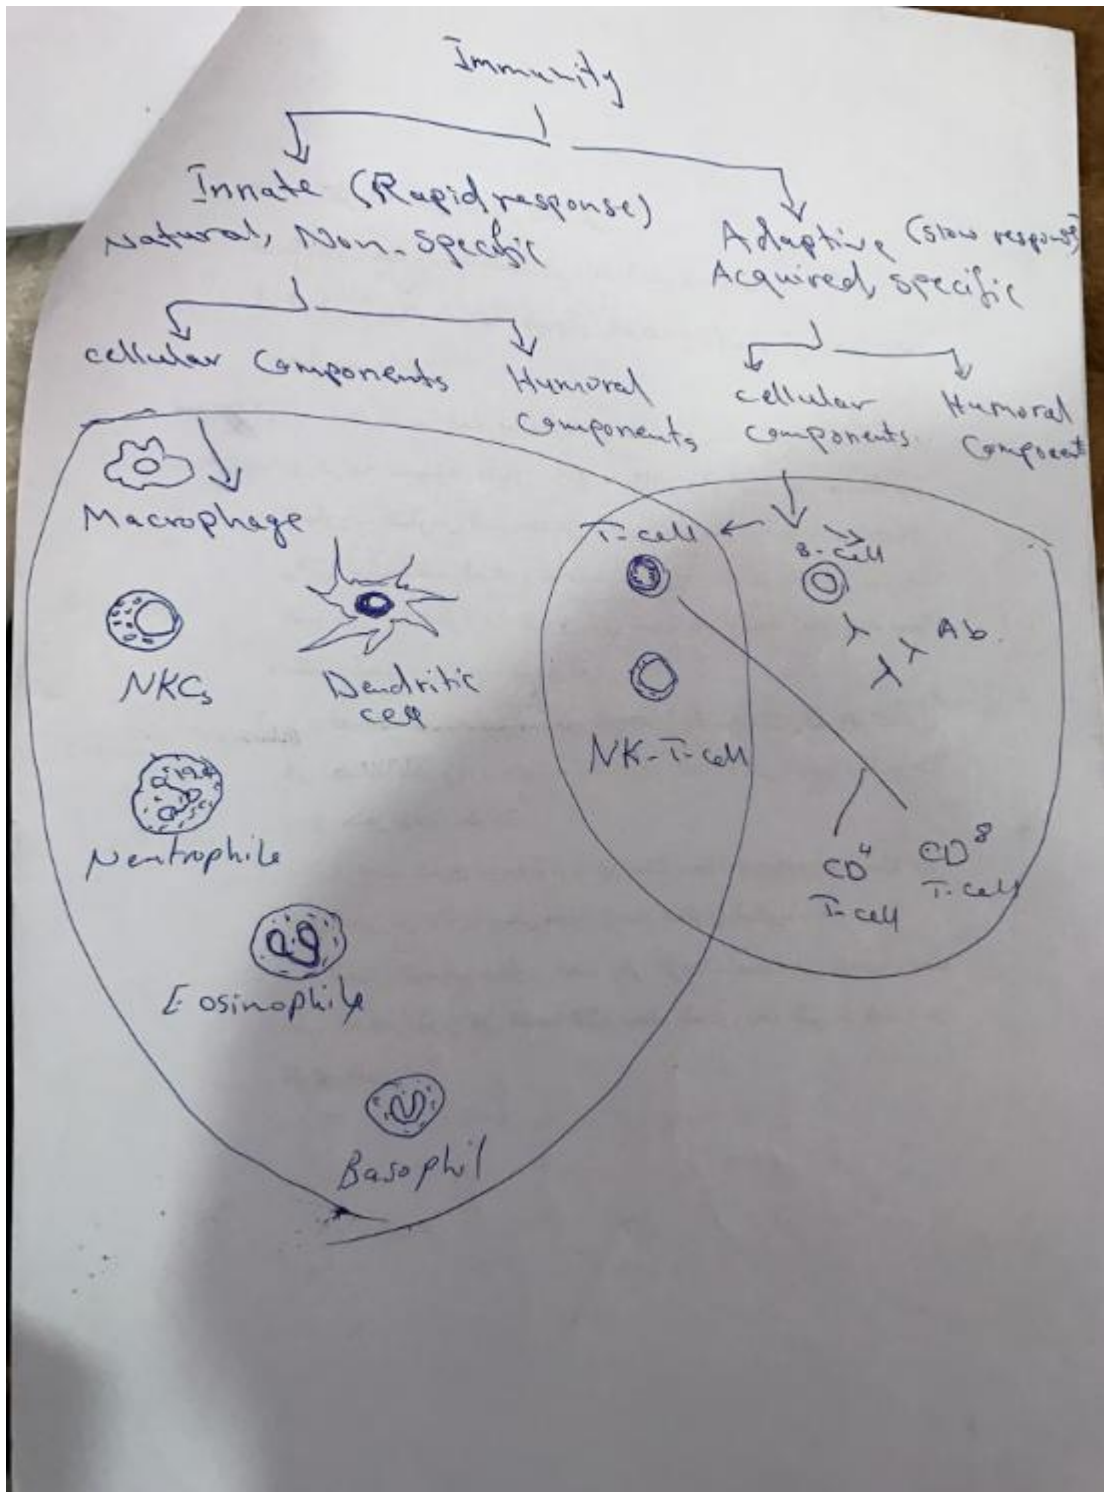 Immunity
Innate (Rapid response)
Natural, Non-Specific
Adaptive (slow response)
Acquired, specific
cellular Components
Humoral
Components
cellular
components
Humoral
Component
Macrophage
NKCs
Dendritic
cell
Neutrophile
Eosinophile
Basophil
T-cell
B-cell
Ab.
NK-T-cell
CD4
T-cell
CD8
T-cell